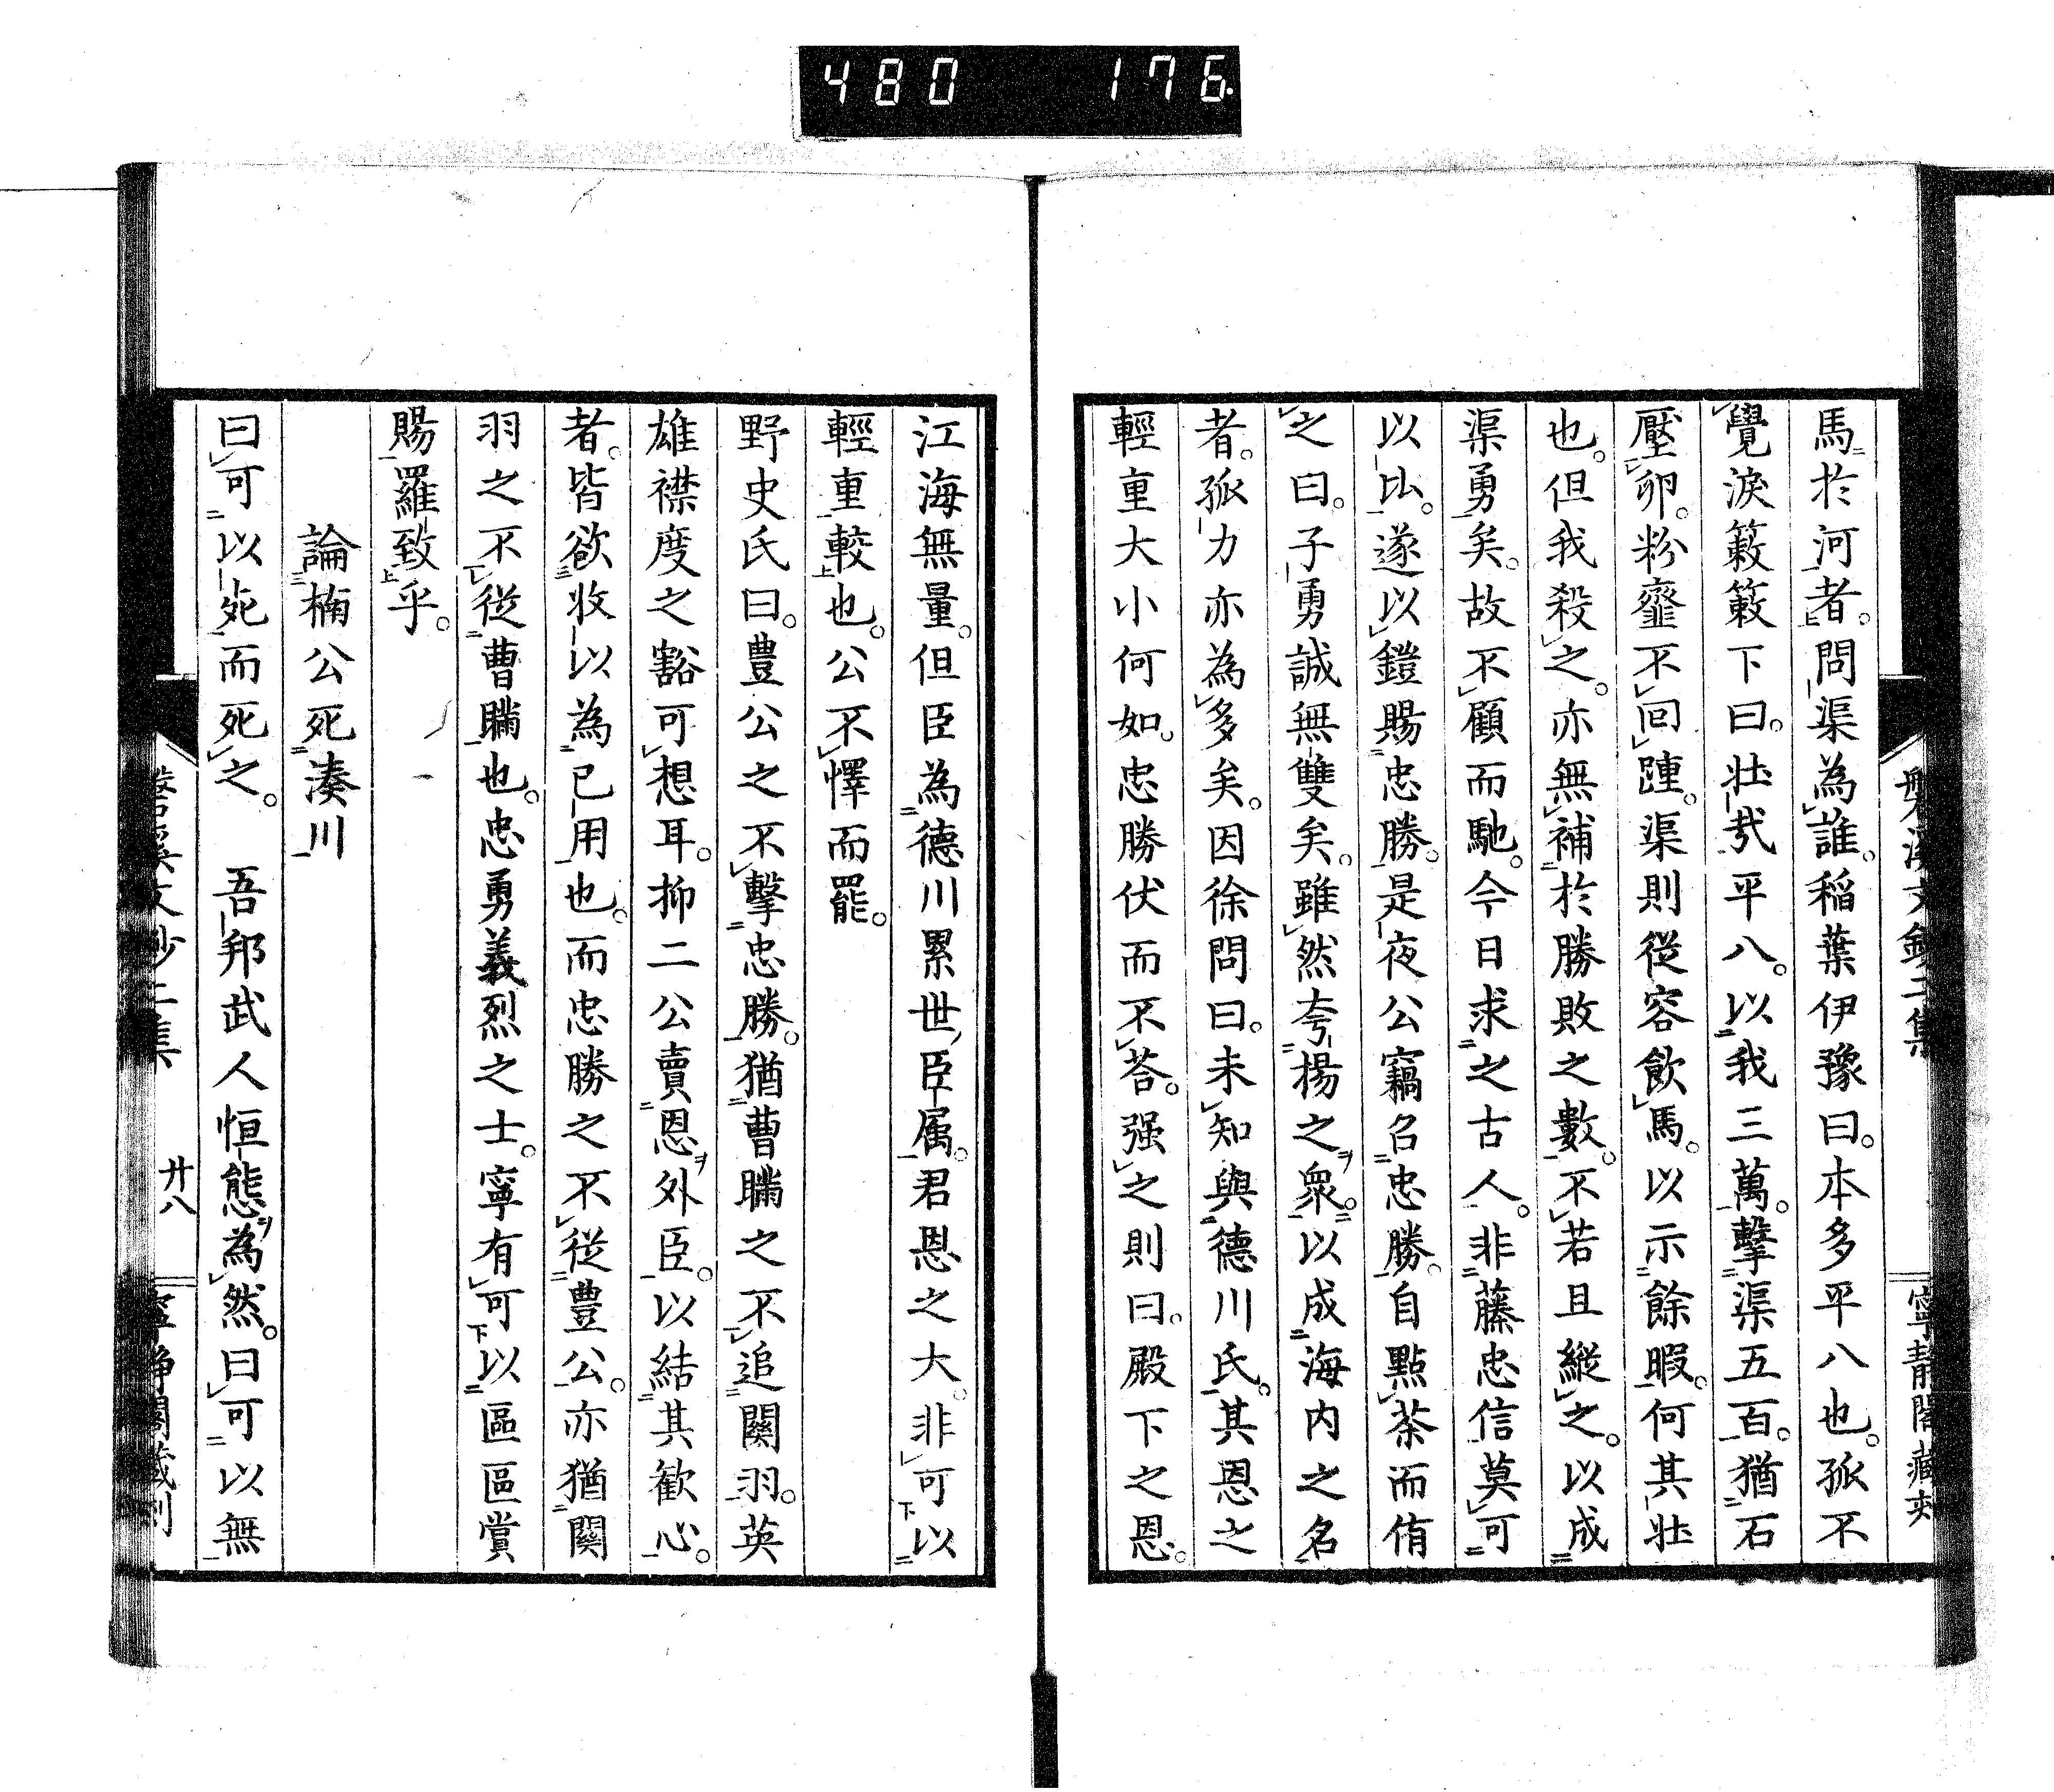 480 176
馬於河者。問渠為誰。稲葉伊豫曰。本多平八也。孤不
覺淚簌簌下曰。壮哉平八。以我三萬。擊渠五百。猶石
壓卵。粉韲不回踵。渠則從容飲馬。以示餘暇。何其壮
也。但我殺之。亦無補於勝敗之數。不若且縱之。以成
渠勇矣。故不顧而馳。今日求之古人。非藤忠信莫可
以比。遂以鎧賜忠勝。是夜公竊召忠勝。自點茶而侑
之曰。子勇誠無雙矣。雖然夸揚之衆。以成海内之名
者。孤力亦為多矣。因徐問曰。未知與德川氏。其恩之
輕重大小何如。忠勝伏而不荅。强之則曰。殿下之恩。
江海無量。但臣為德川累世臣属。君恩之大。非可以
輕重較也。公不懌而罷。
野史氏曰。豊公之不擊忠勝。猶曹瞞之不追關羽。英
雄襟度之豁可想耳。抑二公賣恩外臣。以結其歡心。
者。皆欲收以為己用也。而忠勝之不從豊公。亦猶關
羽之不從曹瞞也。忠勇義烈之士。寧有可以區區賞
賜羅致乎。
論楠公死湊川
曰可以死而死之。吾邦武人恒態為然。曰可以無
廿八